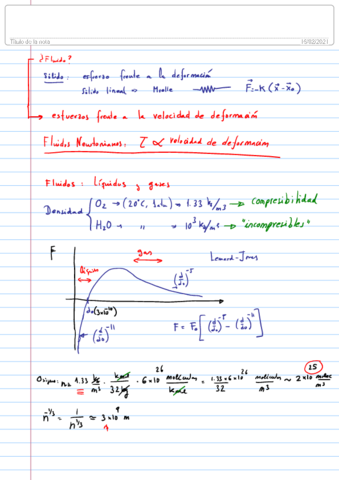 Título de la nota
15/02/2021
¿Fluido?
Sólido: esfuerzo frente a la deformación
Sólido lineal <> Muelle F⃗=-K(x⃗-x⃗₀)
esfuerzos frente a la velocidad de deformación
Fluidos Newtonianos: τ ∝ velocidad de deformación
Fluidos: Líquidos y gases
Densidad { O₂ → (20°C, 1atm) = 1.33 kg/m³ → compresibilidad
H₂O → " = 10³ kg/m³ → "incompresibles"
F
gas
Líquido
Lennard-Jones
(d/d₀)⁻⁵
d₀(3x10⁻¹⁰)
(d/d₀)⁻¹¹
F = F₀[(d/d₀)⁻⁵ - (d/d₀)⁻¹¹]
Oxígeno: 1.33 kg/m³ · kmol/32kg · 6x10²⁶ moléculas/kmol = 1.33·6x10²⁶/32 moléculas/m³ ~ 2x10²⁵ molec/m³
n⁻¹/³ = 1/n¹/³ ≃ 3x10⁻⁹ m